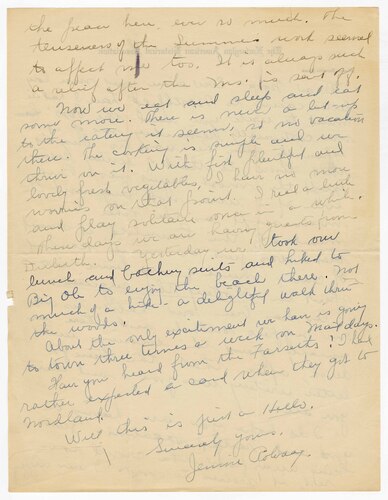 the peace here ever so much. The
tenseness of the Summer work seemed
to affect me too. It is always such
a relief after the Ms. is sent off.
Now we eat and sleep and eat
some more. There is never a let-up
to the eating it seems, so no vacation
there. The cooking is simple and we
thrive on it. With fish plentiful and
lovely fresh vegetables, I have no more
worries on that point. I read a little
and play solitaire once in a while.
These days we are having guests from
Duluth. Yesterday we took our
lunch and bathing suits and hiked to
Big to enjoy the beach there. Not
much of a hike - a delightful walk thru
the woods.
About the only excitement we have is going
to town three times a week on mail days.
Have you heard from the Farseths? I had
rather expected a card when they got to
Nordland.
Well this is just a Hello.
Sincerely yours,
Jennie